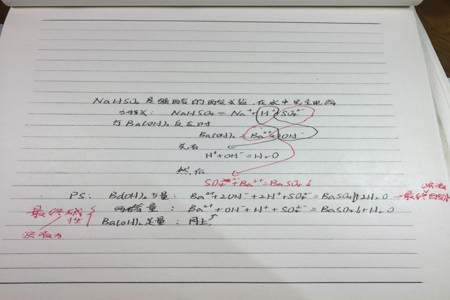 NaHSO₄ 是强酸的酸式盐,在水中完全电离
方程式: NaHSO₄ = Na⁺ + H⁺ + SO₄²⁻
与Ba(OH)₂反应时
Ba(OH)₂ = Ba²⁺ + 2OH⁻
先有
H⁺ + OH⁻ = H₂O
然后
SO₄²⁻ + Ba²⁺ = BaSO₄↓
PS: Ba(OH)₂少量: Ba²⁺ + 2OH⁻ + 2H⁺ + SO₄²⁻ = BaSO₄↓ + 2H₂O
量: Ba²⁺ + OH⁻ + H⁺ + SO₄²⁻ = BaSO₄↓ + H₂O
Ba(OH)₂足量: 同上